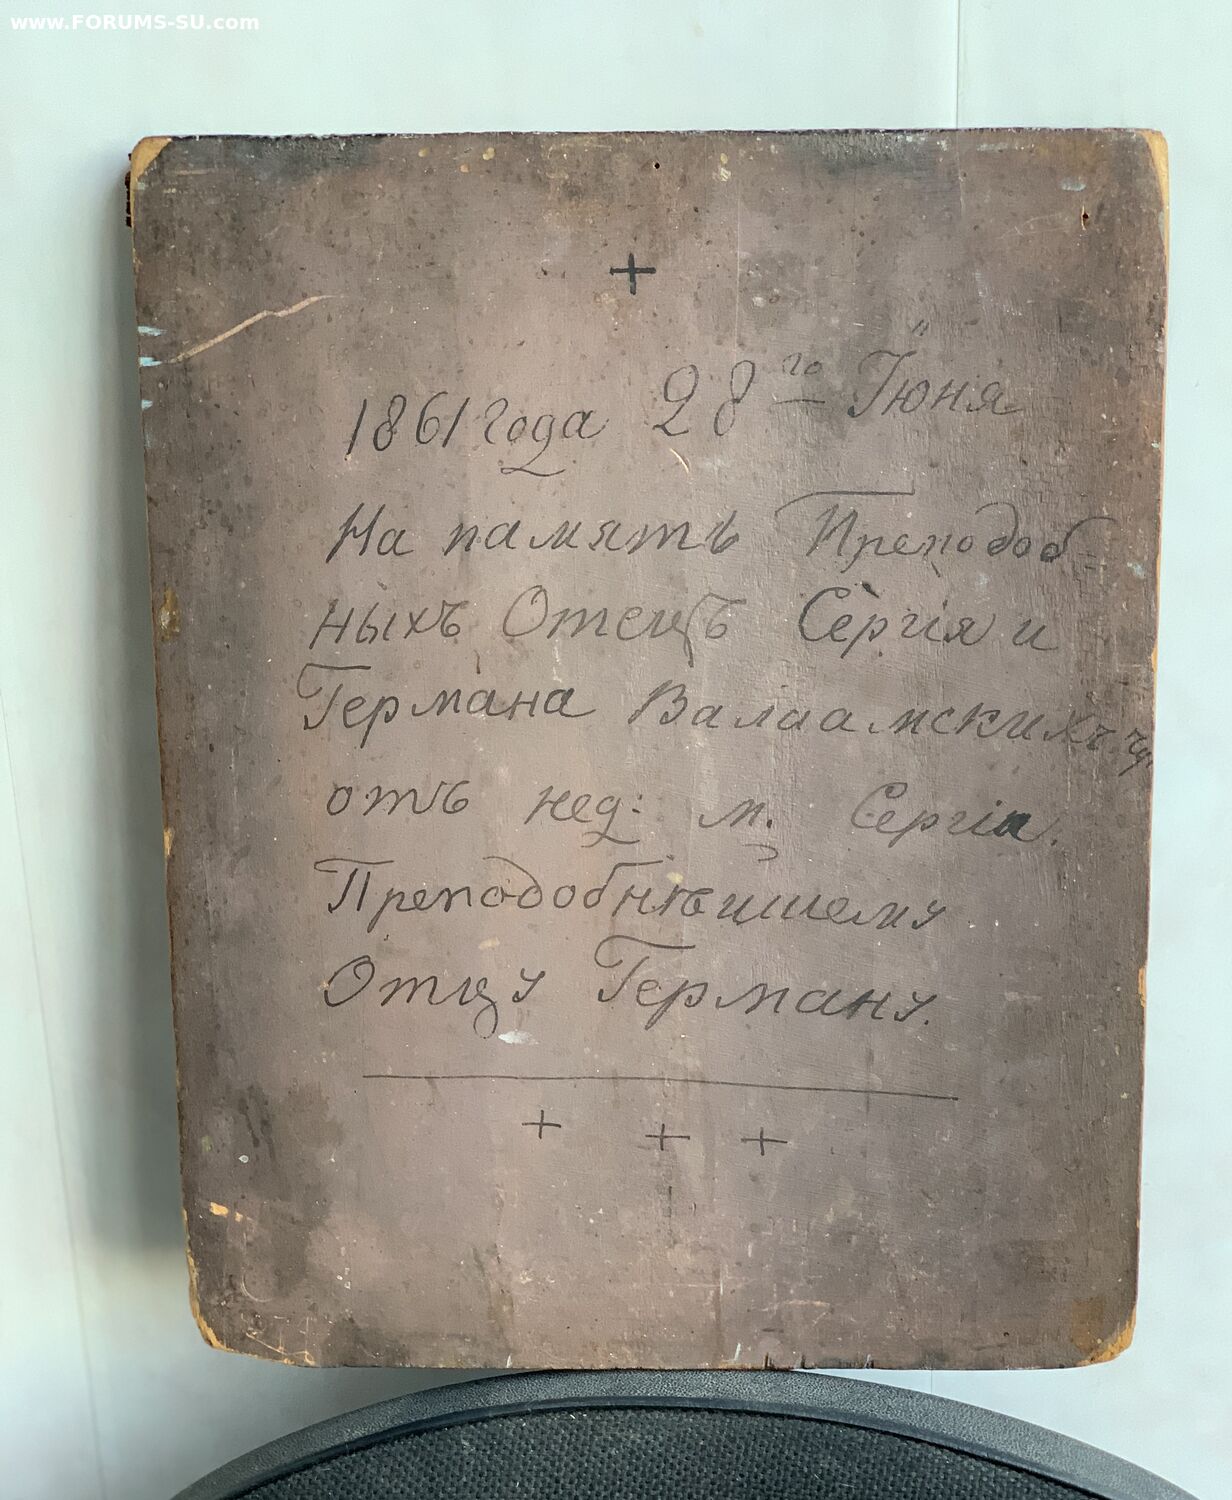 www.FORUMS-SU.com
+
1861 года 28го Іюня
На память Преподоб-
ныхъ Отецъ Сергія и
Германа Валаамскихъ
отъ нед: м. Сергія.
Преподобнѣишему
Отцу Герману.
+ + +